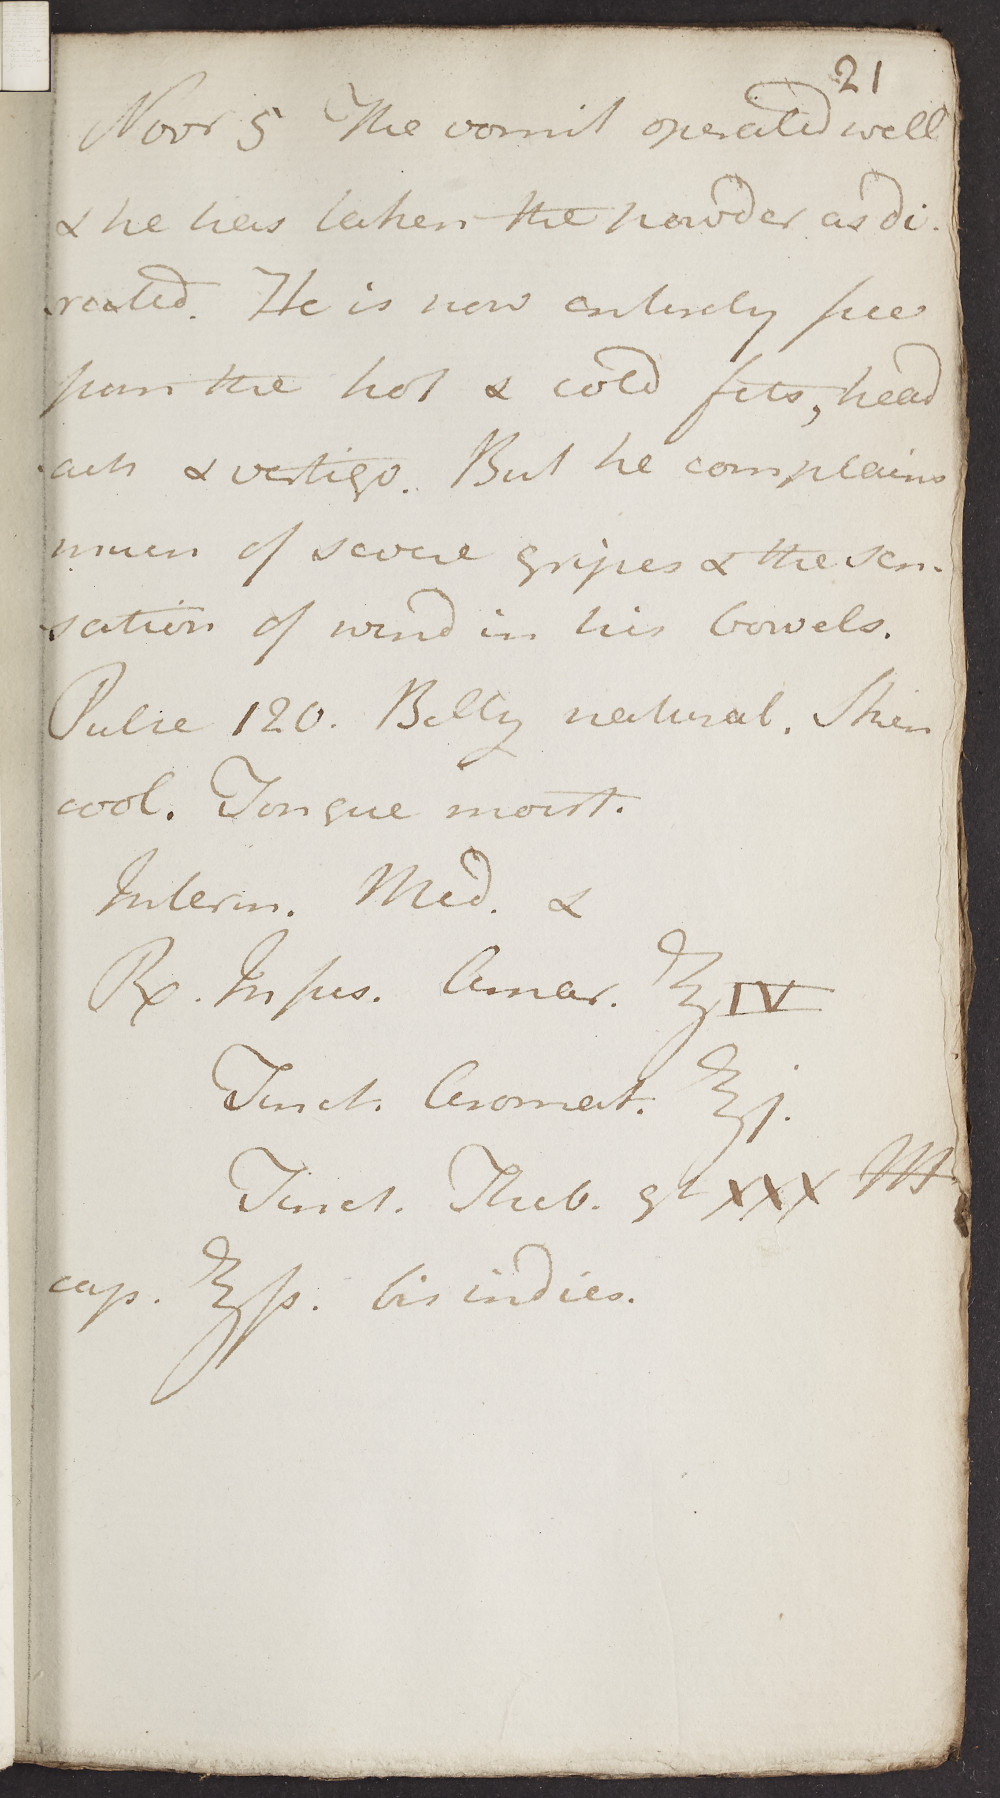 21
Novr 5 The vomit operated well
& he has taken the powder as di-
rected. He is now entirely free
from the hot & cold fits, head
ach & vertigo. But he complains
much of severe gripes & the sen-
sation of wind in his bowels.
Pulse 120. Belly natural. Skin
cool. Tongue moist.
Interm. Med. &
Rx. Infus. Amar. ℥IV
Tinct. Aromat. ℥j.
Tinct. Theb. gt XXX M
cap. ℥ß. bis indies.